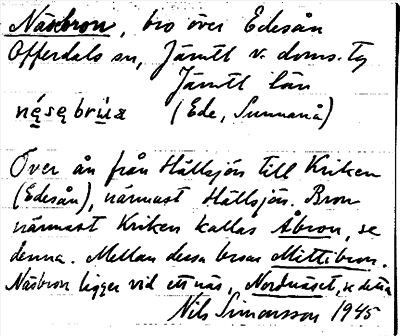 Näsbron, bro över Edesån
Offerdals sn, Jämtl v. doms. tg
Jämtl län
nésebrúa (Ede, Sunnanå)
Över ån från Hällsjön till Kriken
(Edesån), närmast Hällsjön. Bron
närmast Kriken kallas Åbron, se
denna. Mellan dessa broar Mittibron.
Näsbron ligger vid ett näs, Nordnäset, se detta
Nils Simonsson 1945